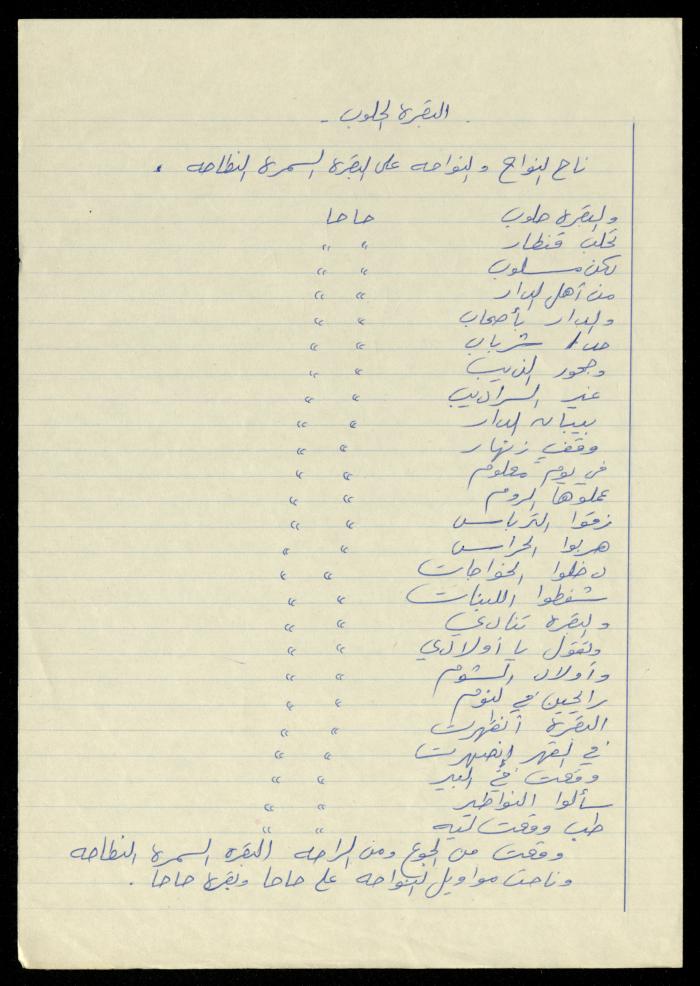 البقرة الحلوب -
ناح النواح والنواحه على البقرة السمرة النطاحه .
والبقرة حلوب حاحا
تحلب قنطار " "
لكن مسلوب " "
من أهل الدار " "
والدار بأصحاب " "
شرباب " "
وجحور الديب " "
غير السراديب " "
بيبان الدار " "
وقفي زنهار " "
في يوم معلوم " "
عملوها الروم " "
زقوا الترباس " "
هربوا الحراس " "
دخلوا الخواجات " "
شفطوا اللبنات " "
والبقرة تنادي " "
وتقول يا أولادي " "
وأولاد الشوم " "
رايحين في النوم " "
البقرة انقهرت " "
في القهر انصهرت " "
وقعت في البير " "
سألوا النواطير " "
طب وقعت ليه " "
وقعت من الجوع ومن الراحه البقره السمرة النطاحه
وناحت مواويل النواحه على حاحا وبقرة حاحا .